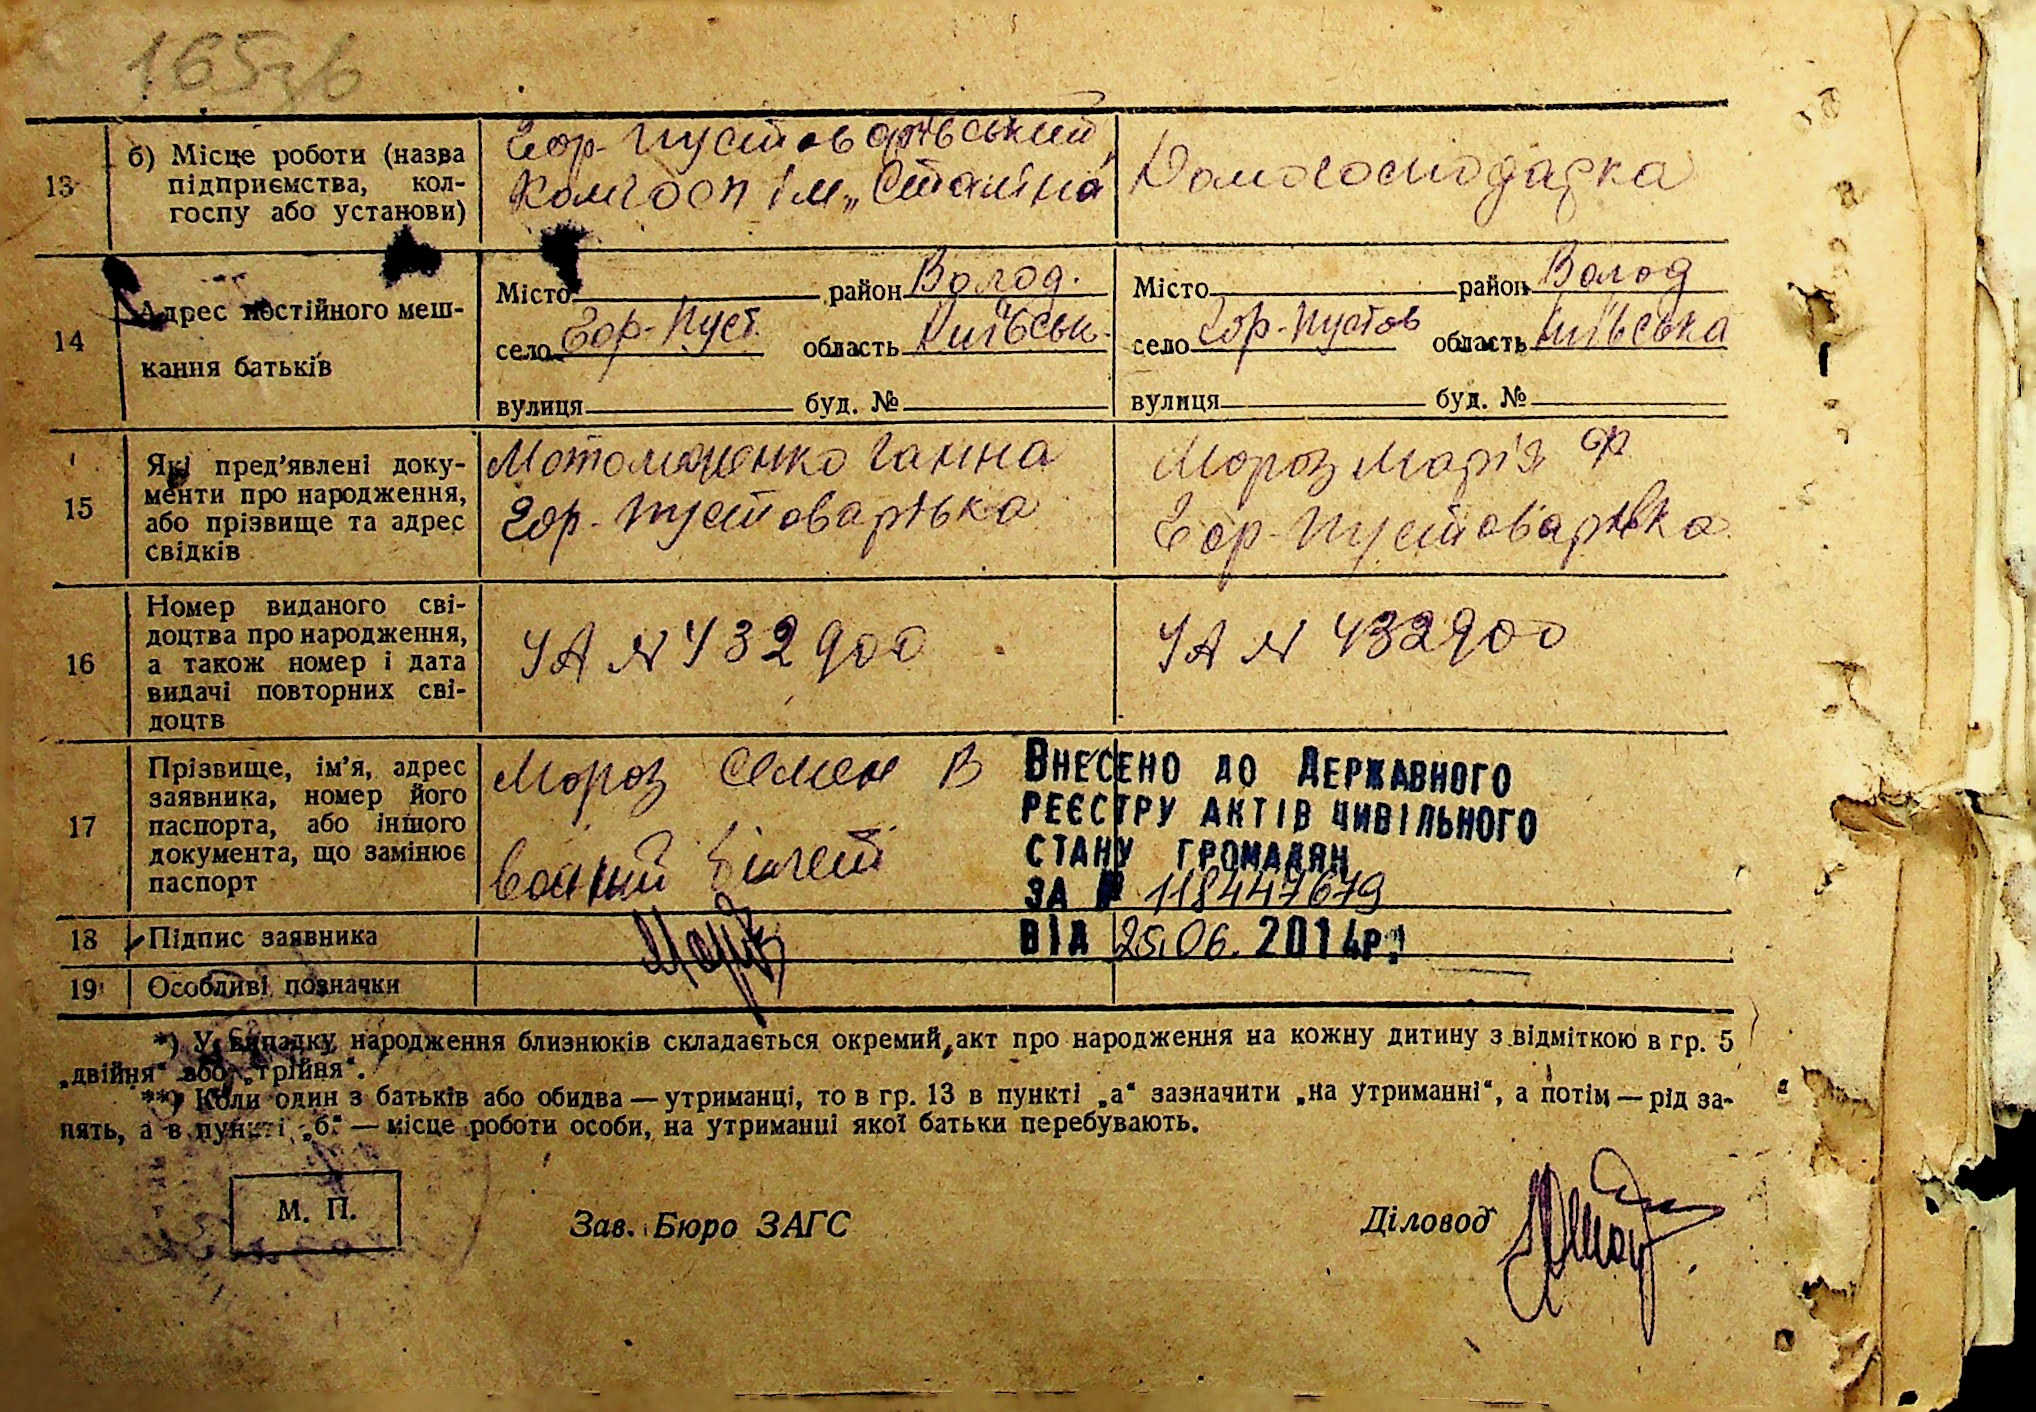 165 зв
13
б) Місце роботи (назва
підприємства, кол-
госпу або установи)
Гор-Пустоварівський
Колгосп ім „Сталіна
Домогосподарка
14
Адрес постійного меш-
кання батьків
Місто район Волод.
село Гор-Пуст. область Київськ.
вулиця буд. №
Місто район Волод
село Гор-Пустов область Київська
вулиця буд. №
15
Які пред'явлені доку-
менти про народження,
або прізвище та адрес
свідків
Ганна
Гор-Пустоварівка
Мороз Марія Ф
Гор-Пустоварівка
16
Номер виданого сві-
доцтва про народження,
а також номер і дата
видачі повторних сві-
доцтв
УА N 432900
УА N 432900
17
Прізвище, ім'я, адрес
заявника, номер його
паспорта, або іншого
документа, що замінює
паспорт
Мороз Семен В
воєнний білет
Внесено до Державного
реєстру актів цивільного
стану громадян
за № 118447679
від 25.06.2014р.
18 Підпис заявника
19 Особливі позначки
*) У випадку народження близнюків складається окремий акт про народження на кожну дитину з відміткою в гр. 5
„двійня“ або „трійня“.
**) Коли один з батьків або обидва — утриманці, то в гр. 13 в пункті „а“ зазначити „на утриманні“, а потім — рід за-
нять, а в пункті „б“ — місце роботи особи, на утриманні якої батьки перебувають.
М. П.
Зав. Бюро ЗАГС
Діловод